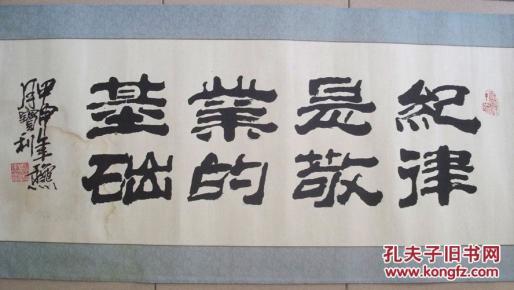 紀律
是敬
業的
基础
甲申年
孔夫子旧书网
www.kongfz.com